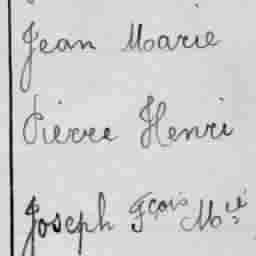 Jean Marie
Pierre Henri
Joseph Fçois Mie